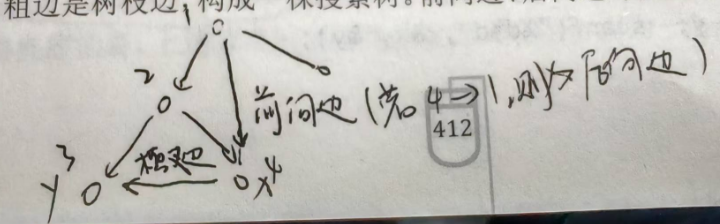 粗边是树枝边,构成一棵搜索树。前向边
1
2
前向边(若4→1,则为后向边)
412
3
横叉边
y
x4